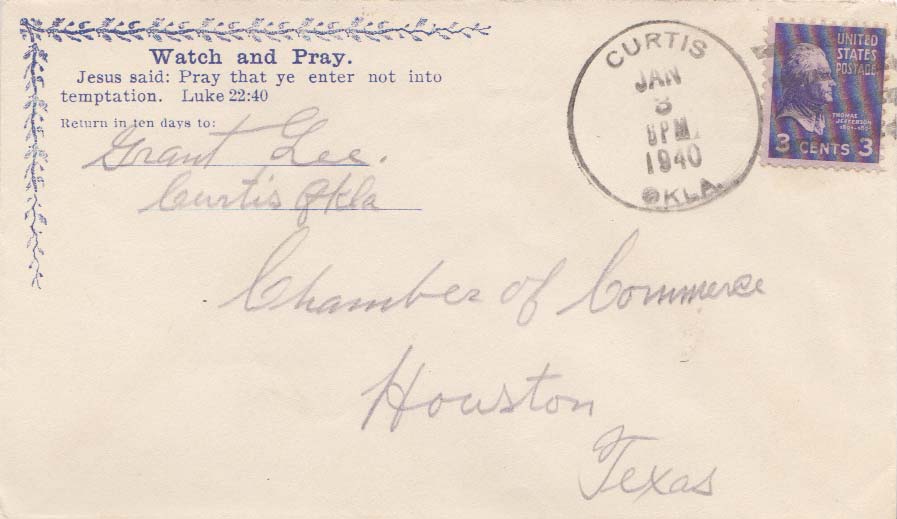 Watch and Pray.
Jesus said: Pray that ye enter not into
temptation. Luke 22:40
Return in ten days to:
Grant Lee.
Curtis Okla
CURTIS
JAN
3
PM
1940
OKLA.
UNITED
STATES
POSTAGE
THOMAS
JEFFERSON
3 CENTS 3
Chamber of Commerce
Houston
Texas